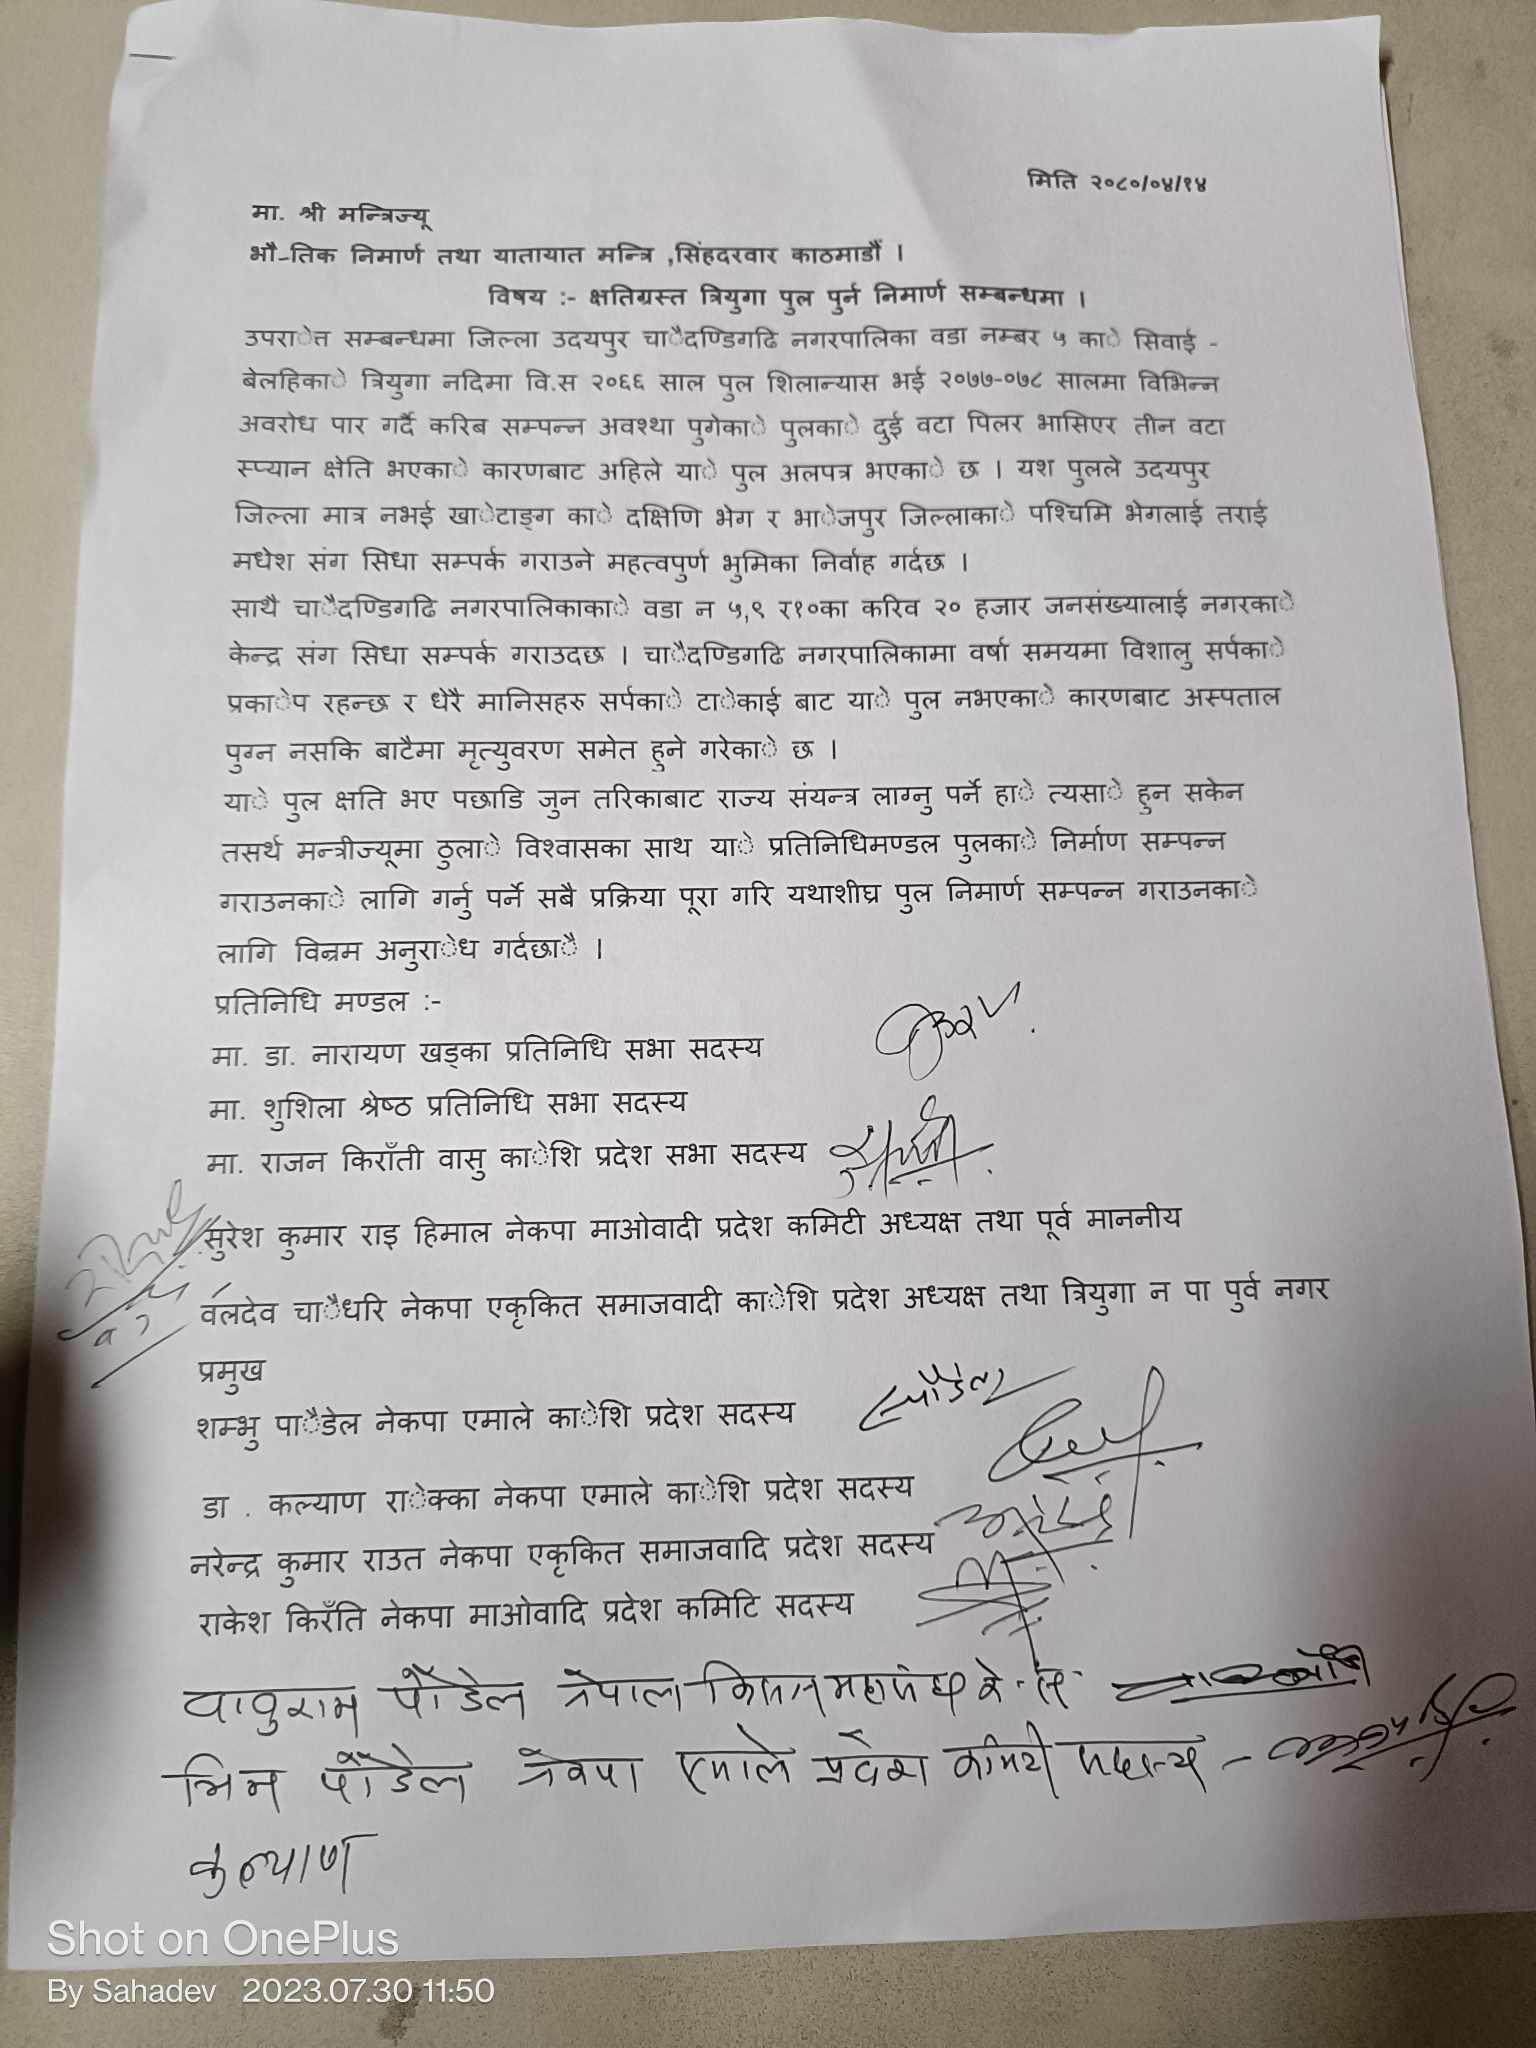 मिति २०८०/०४/१४
मा. श्री मन्त्रिज्यू
भौ-तिक निमार्ण तथा यातायात मन्त्रि ,सिंहदरवार काठमाडौं ।
विषय :- क्षतिग्रस्त त्रियुगा पुल पुर्न निमार्ण सम्बन्धमा ।
उपराेत्त सम्बन्धमा जिल्ला उदयपुर चाैदण्डिगढि नगरपालिका वडा नम्बर ५ काे सिवाई -
बेलहिकाे त्रियुगा नदिमा वि.स २०६६ साल पुल शिलान्यास भई २०७७-०७८ सालमा विभिन्न
अवरोध पार गर्दै करिब सम्पन्न अवश्था पुगेकाे पुलकाे दुई वटा पिलर भासिएर तीन वटा
स्प्यान क्षेति भएकाे कारणबाट अहिले याे पुल अलपत्र भएकाे छ । यश पुलले उदयपुर
जिल्ला मात्र नभई खाेटाङ्ग काे दक्षिणि भेग र भाेजपुर जिल्लाकाे पश्चिमि भेगलाई तराई
मधेश संग सिधा सम्पर्क गराउने महत्वपुर्ण भुमिका निर्वाह गर्दछ ।
साथै चाैदण्डिगढि नगरपालिकाकाे वडा न ५,९ र१०का करिव २० हजार जनसंख्यालाई नगरकाे
केन्द्र संग सिधा सम्पर्क गराउदछ । चाैदण्डिगढि नगरपालिकामा वर्षा समयमा विशालु सर्पकाे
प्रकाेप रहन्छ र धेरै मानिसहरु सर्पकाे टाेकाई बाट याे पुल नभएकाे कारणबाट अस्पताल
पुग्न नसकि बाटैमा मृत्युवरण समेत हुने गरेकाे छ ।
याे पुल क्षति भए पछाडि जुन तरिकाबाट राज्य संयन्त्र लाग्नु पर्ने हाे त्यसाे हुन सकेन
तसर्थ मन्त्रीज्यूमा ठुलाे विश्वासका साथ याे प्रतिनिधिमण्डल पुलकाे निर्माण सम्पन्न
गराउनकाे लागि गर्नु पर्ने सबै प्रक्रिया पूरा गरि यथाशीघ्र पुल निमार्ण सम्पन्न गराउनकाे
लागि विन्रम अनुराेध गर्दछाै ।
प्रतिनिधि मण्डल :-
मा. डा. नारायण खड्का प्रतिनिधि सभा सदस्य
मा. शुशिला श्रेष्ठ प्रतिनिधि सभा सदस्य
मा. राजन किराँती वासु काेशि प्रदेश सभा सदस्य
सुरेश कुमार राइ हिमाल नेकपा माओवादी प्रदेश कमिटी अध्यक्ष तथा पूर्व माननीय
वलदेव चाैधरि नेकपा एकृकित समाजवादी काेशि प्रदेश अध्यक्ष तथा त्रियुगा न पा पुर्व नगर
प्रमुख
शम्भु पाैडेल नेकपा एमाले काेशि प्रदेश सदस्य
डा . कल्याण राेक्का नेकपा एमाले काेशि प्रदेश सदस्य
नरेन्द्र कुमार राउत नेकपा एकृकित समाजवादि प्रदेश सदस्य
राकेश किरँति नेकपा माओवादि प्रदेश कमिटि सदस्य
वावुराम पौडेल नेपाल किसान महासंघ के.
भिम पौडेल नेकपा एमाले प्रदेश कमिटी सदस्य -
कल्याण
Shot on OnePlus
By Sahadev 2023.07.30 11:50